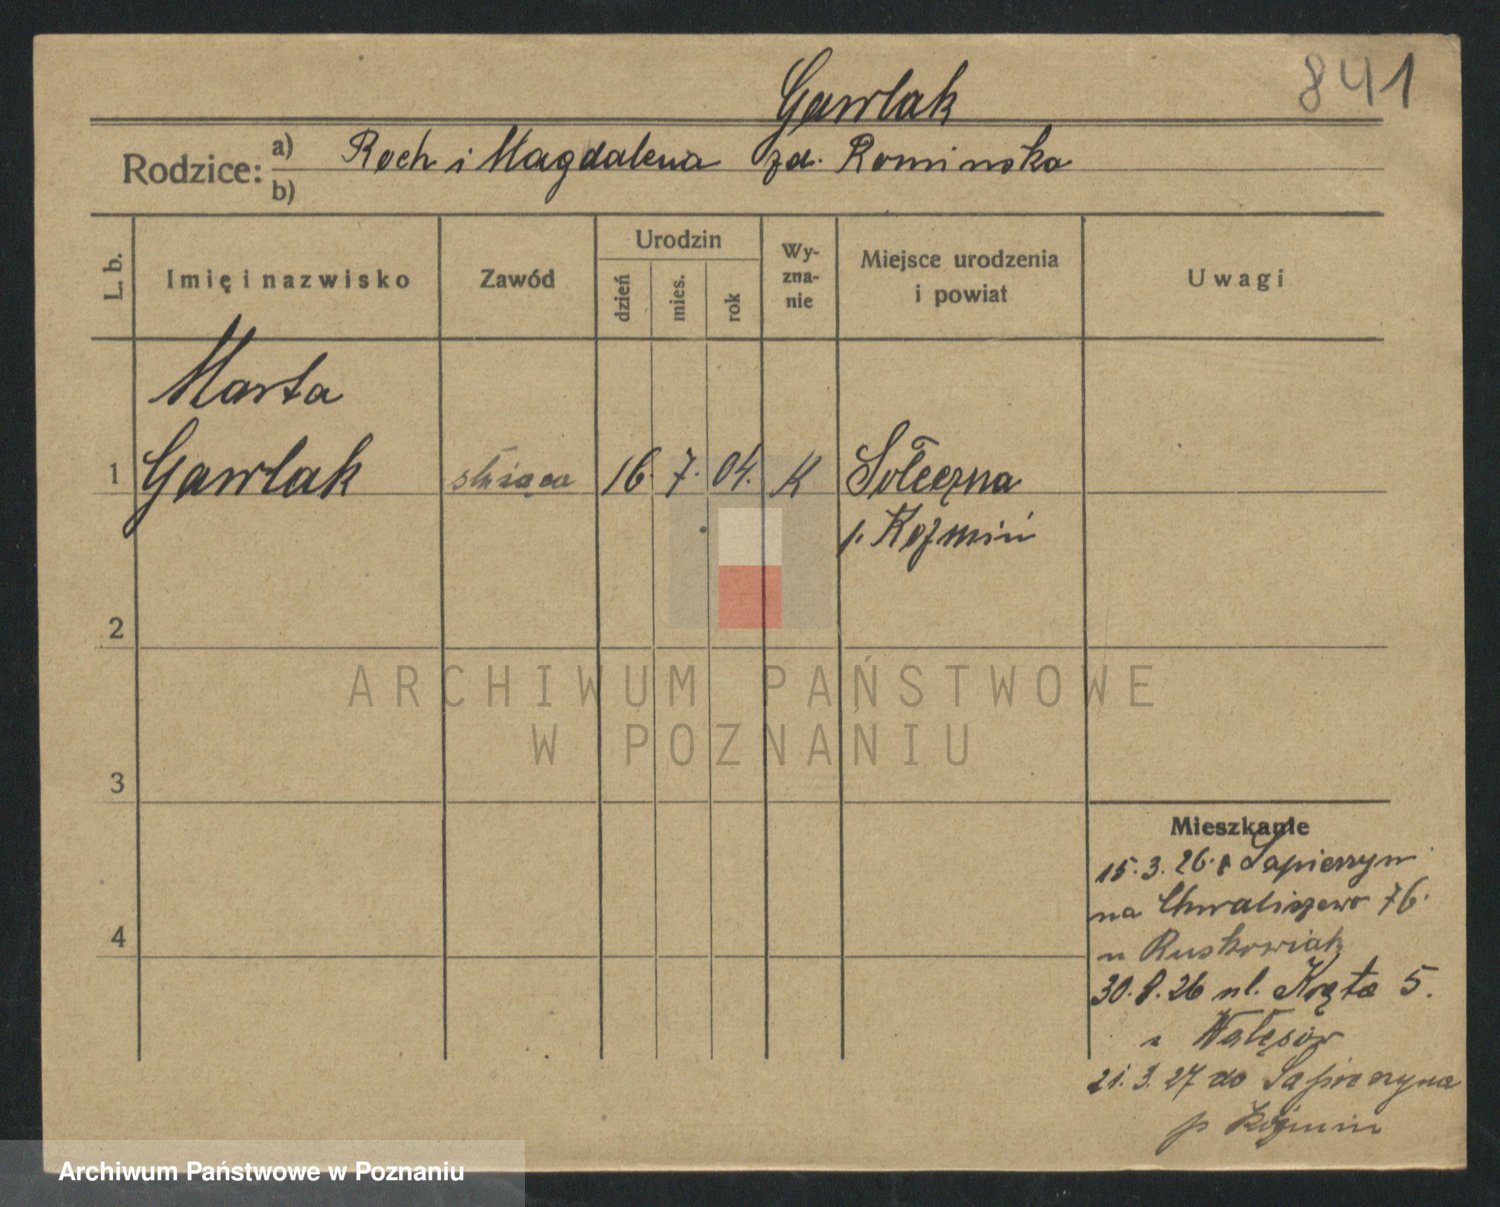 841
Gawlak
Rodzice: a) Roch i Magdalena zd. Rominska
b)
L. b.
Imię i nazwisko
Zawód
Urodzin
dzień
mies.
rok
Wy-
zna-
nie
Miejsce urodzenia
i powiat
Uwagi
Marta
1 Gawlak służąca 16. 7. 04. K
p. Koźmin
2
3
4
ARCHIWUM PAŃSTWOWE
W POZNANIU
Mieszkanie
15.3.26. z Sapierzyn
na Chwaliszewo 76.
u Ruskowiak
30.8.26 ul. Kręta 5.
21.3.27 do Sapierzyna
p Koźmin
Archiwum Państwowe w Poznaniu